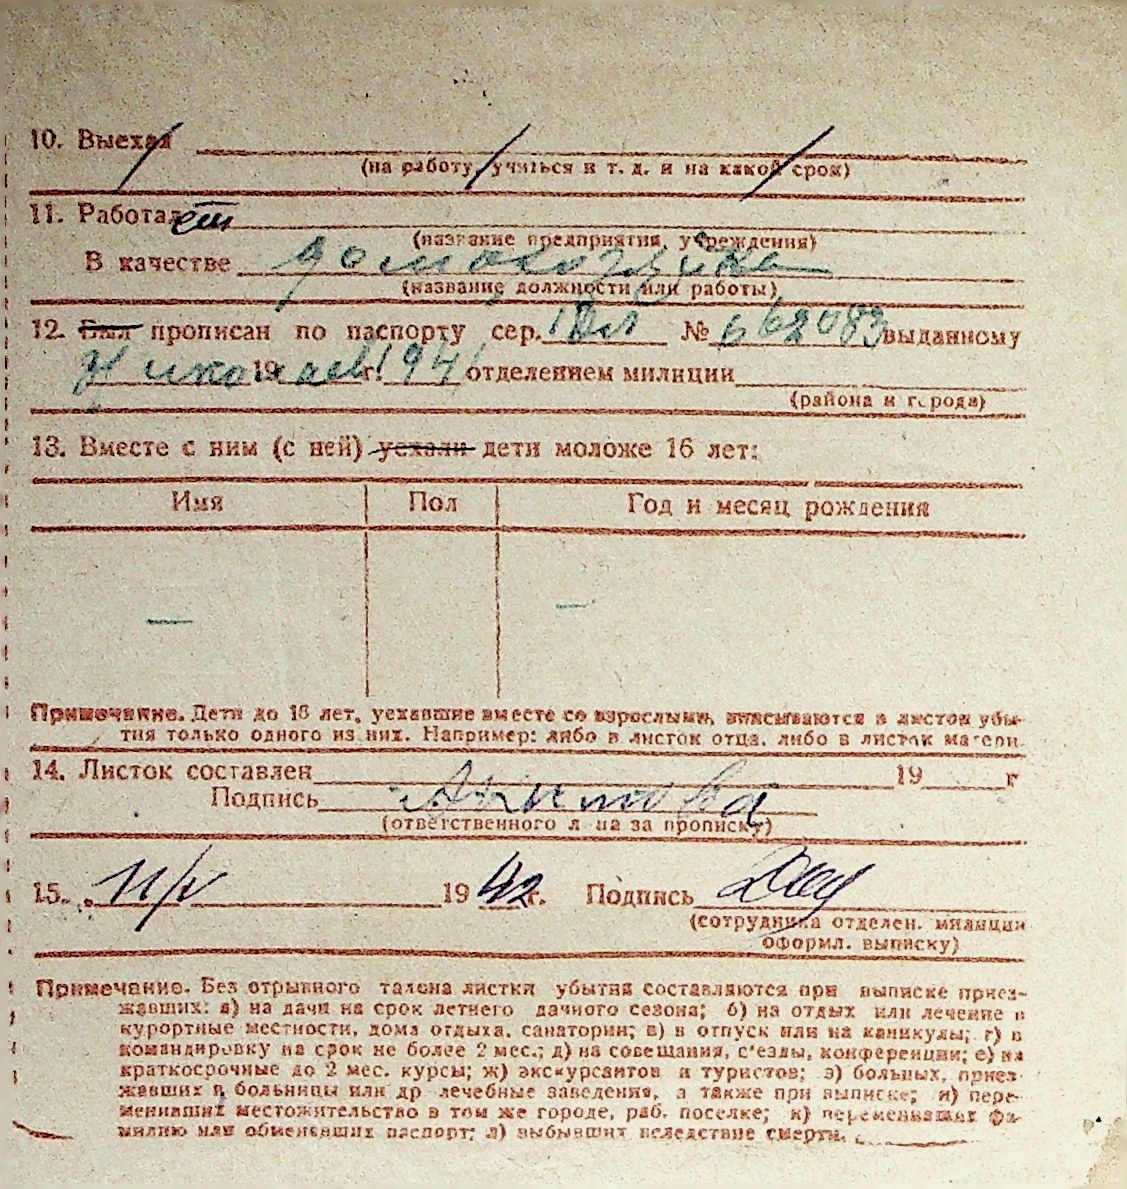 10. Выехал
(на работу, учиться и т. д. и на какой срок)
11. Работает
(название предприятия, учреждения)
В качестве домохозяйка
(название должности или работы)
12. Был прописан по паспорту сер. № 662083 выданному
Николаев 19 г. 1941 отделением милиции
(района и города)
13. Вместе с ним (с ней) уехали дети моложе 16 лет:
Имя Пол Год и месяц рождения
— —
Примечание. Дети до 16 лет, уехавшие вместе со взрослыми, вписываются в листок убы-
тия только одного из них. Например: либо в листок отца, либо в листок матери.
14. Листок составлен 19 г
Подпись Акимова
(ответственного лица за прописку)
15. 11/V 1942 г. Подпись
(сотрудника отделен. милиции
оформл. выписку)
Примечание. Без отрывного талона листки убытия составляются при выписке приез-
жавших: а) на дачи на срок летнего дачного сезона; б) на отдых или лечение в
курортные местности, дома отдыха, санатории; в) в отпуск или на каникулы; г) в
командировку на срок не более 2 мес.; д) на совещания, с'езды, конференции; е) на
краткосрочные до 2 мес. курсы; ж) экскурсантов и туристов; з) больных, приез-
жавших в больницы или др лечебные заведения, а также при выписке; и) пере-
менивших местожительство в том же городе, раб. поселке; к) переменивших фа-
милию или обменявших паспорт; л) выбывших вследствие смерти.